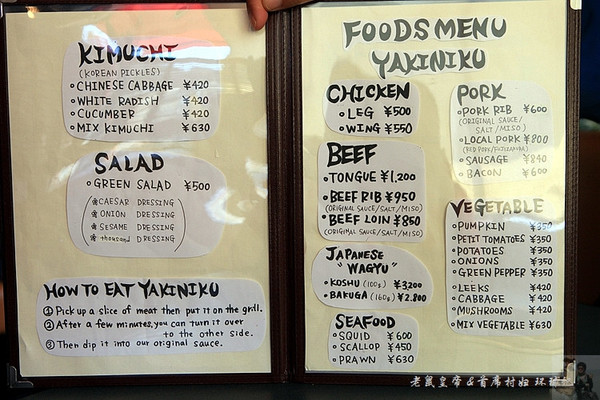 KIMUCHI
(KOREAN PICKLES)
CHINESE CABBAGE ¥420
WHITE RADISH ¥420
CUCUMBER ¥420
MIX KIMUCHI ¥630
SALAD
GREEN SALAD ¥500
CAESAR DRESSING
ONION DRESSING
SESAME DRESSING
thousand DRESSING
HOW TO EAT YAKINIKU
① Pick up a slice of meat then put it on the grill.
② After a few minutes, you can turn it over
to the other side.
③ Then dip it into our original sauce.
FOODS MENU
YAKINIKU
CHICKEN
LEG ¥500
WING ¥550
BEEF
TONGUE ¥1,200
BEEF RIB ¥950
(ORIGINAL SAUCE/SALT/MISO)
BEEF LOIN ¥850
(ORIGINAL SAUCE/SALT/MISO)
JAPANESE
"WAGYU"
KOSHU (100g) ¥3,200
BAKUGA (160g) ¥2.800
SEAFOOD
SQUID ¥600
SCALLOP ¥450
PRAWN ¥630
PORK
PORK RIB ¥600
(ORIGINAL SAUCE/
SALT/MISO)
LOCAL PORK ¥800
SAUSAGE ¥840
BACON ¥600
VEGETABLE
PUMPKIN ¥350
PETIT TOMATOES ¥350
POTATOES ¥350
ONIONS ¥350
GREEN PEPPER ¥350
LEEKS ¥420
CABBAGE ¥420
MUSHROOMS ¥420
MIX VEGETABLE ¥630
老鼠皇帝&首席村妇